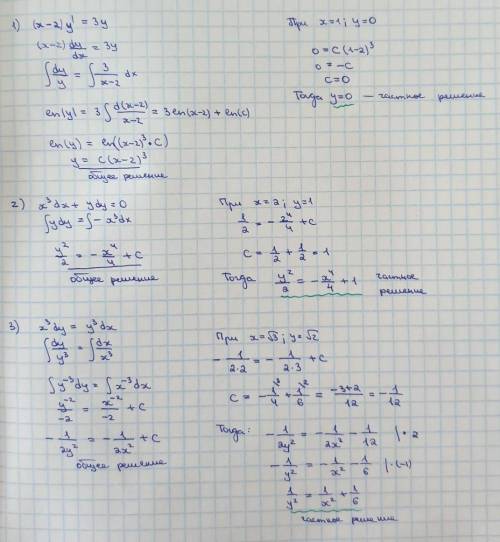 1) (x-2) y' = 3y
(x-2) dy/dx = 3y
∫ dy/y = ∫ 3/(x-2) dx
ln(y) = 3 ∫ d(x-2)/(x-2) = 3 ln(x-2) + ln(c)
ln(y) = ln((x-2)³ · C)
y = C(x-2)³
общее решение
При x=1; y=0
0 = C(1-2)³
0 = -C
C=0
Тогда y=0 — частное решение
2) x³dx + ydy = 0
∫ydy = ∫-x³dx
y²/2 = -x⁴/4 + C
общее решение
При x=2; y=1
1/2 = - 2⁴/4 + C
C = 1/2 + 1/2 = 1
Тогда y²/2 = -x⁴/4 + 1 частное
решение
3) x³dy = y³dx
∫ dy/y³ = ∫ dx/x³
∫y⁻³dy = ∫x⁻³dx
y⁻²/-2 = x⁻²/-2 + C
- 1/2y² = - 1/2x² + C
общее решение
При x=√3; y=√2
- 1/2·2 = - 1/2·3 + C
C = - 1/4 + 1/6 = -3+2/12 = - 1/12
Тогда: - 1/2y² = - 1/2x² - 1/12 |· 2
- 1/y² = - 1/x² - 1/6 |·(-1)
1/y² = 1/x² + 1/6
частное решение